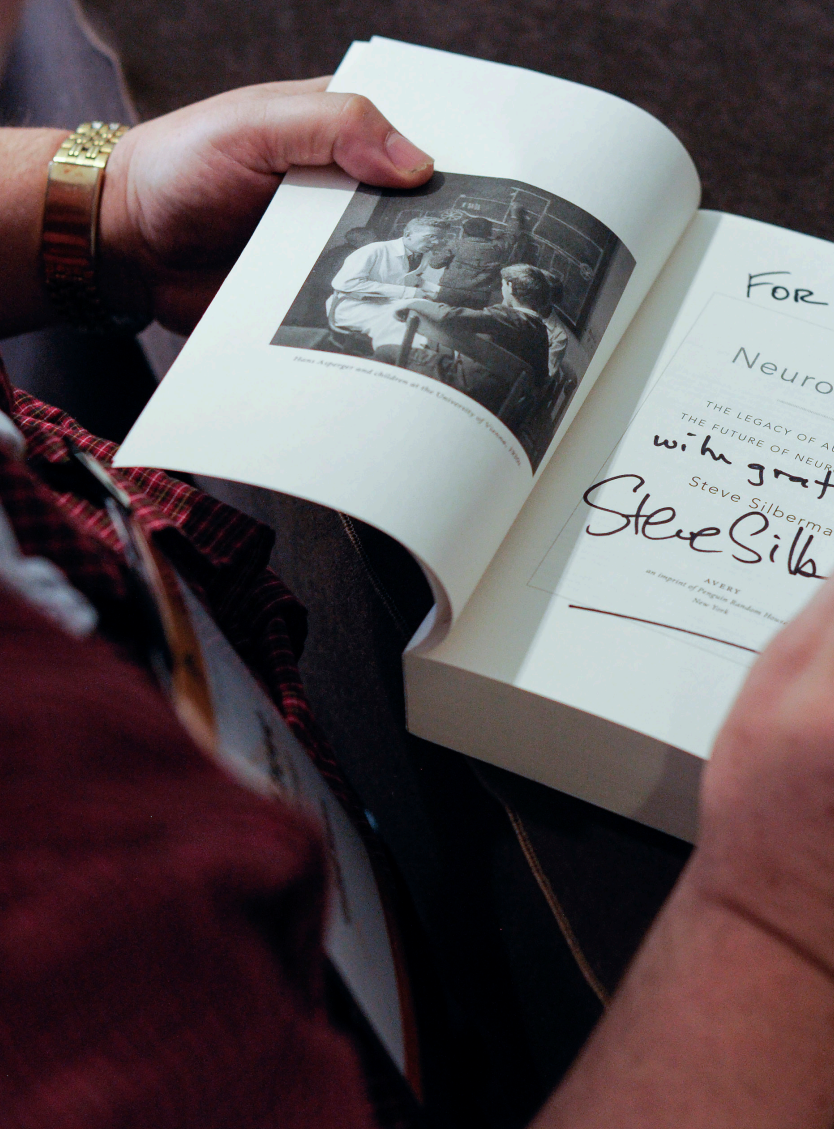 rub
Hans Asperger and children at the University of Vienna, 1930s
FOR
Neuro
THE LEGACY OF AU
THE FUTURE OF NEUR
with grat
Steve Silberma
Steve Silb
AVERY
an imprint of Penguin Random House
New York